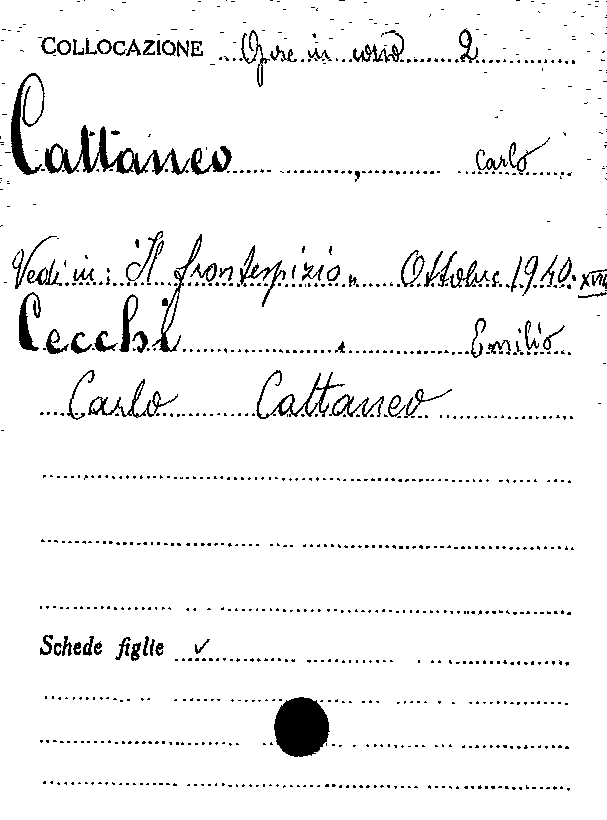 COLLOCAZIONE Opere in corso 2
Cattaneo , Carlo
Vedi in: "Il frontespizio" Ottobre 1940. XVIII
Cecchi , Emilio
Carlo Cattaneo
Schede figlie ✓